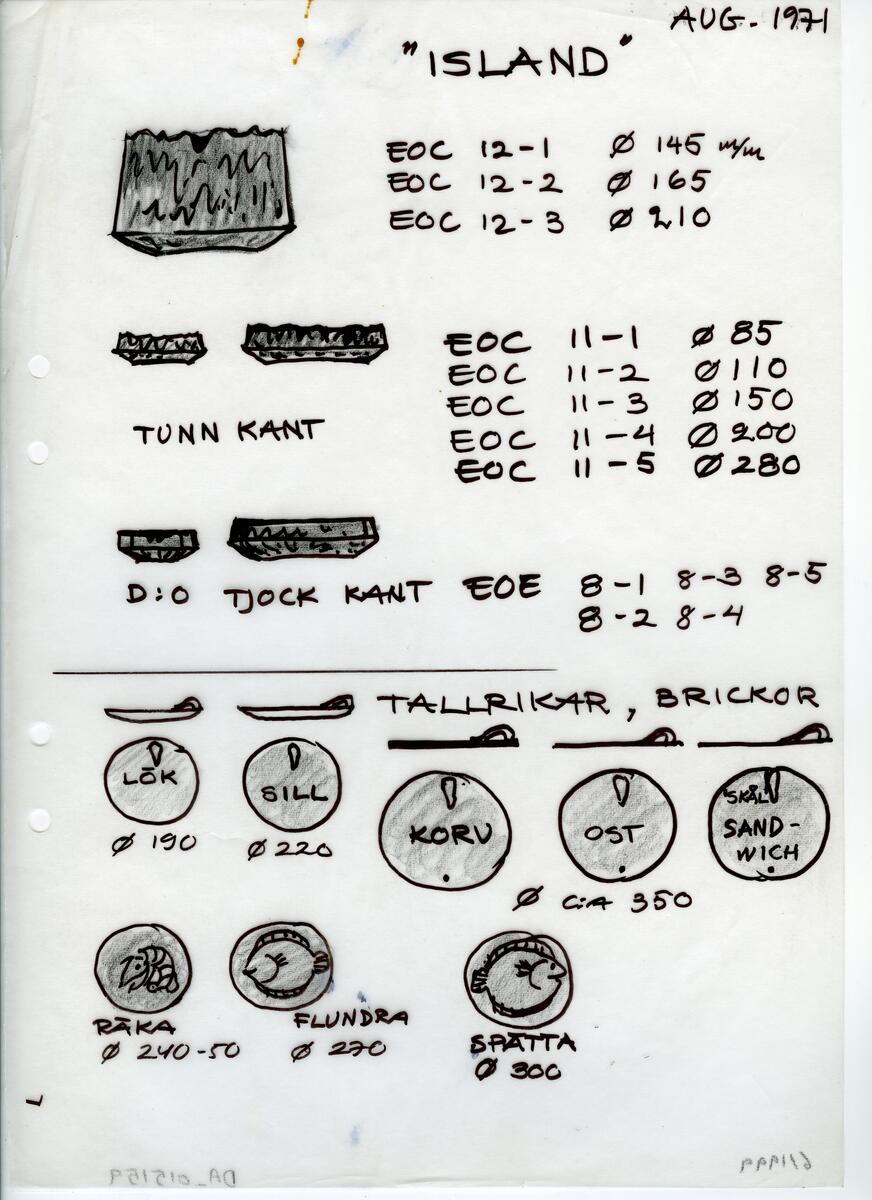 AUG. 1971
"ISLAND"
EOC 12-1 Ø 145 m/m
EOC 12-2 Ø 165
EOC 12-3 Ø 210
EOC 11-1 Ø 85
EOC 11-2 Ø 110
EOC 11-3 Ø 150
EOC 11-4 Ø 200
EOC 11-5 Ø 280
TUNN KANT
D:O TJOCK KANT EOE 8-1 8-3 8-5
8-2 8-4
TALLRIKAR, BRICKOR
LÖK
Ø 190
SILL
Ø 220
KORV
OST
"SKÅL"
SAND-
WICH
Ø C:A 350
RÄKA
Ø 240-50
FLUNDRA
Ø 270
SPÄTTA
Ø 300
DA_015159
6/1999